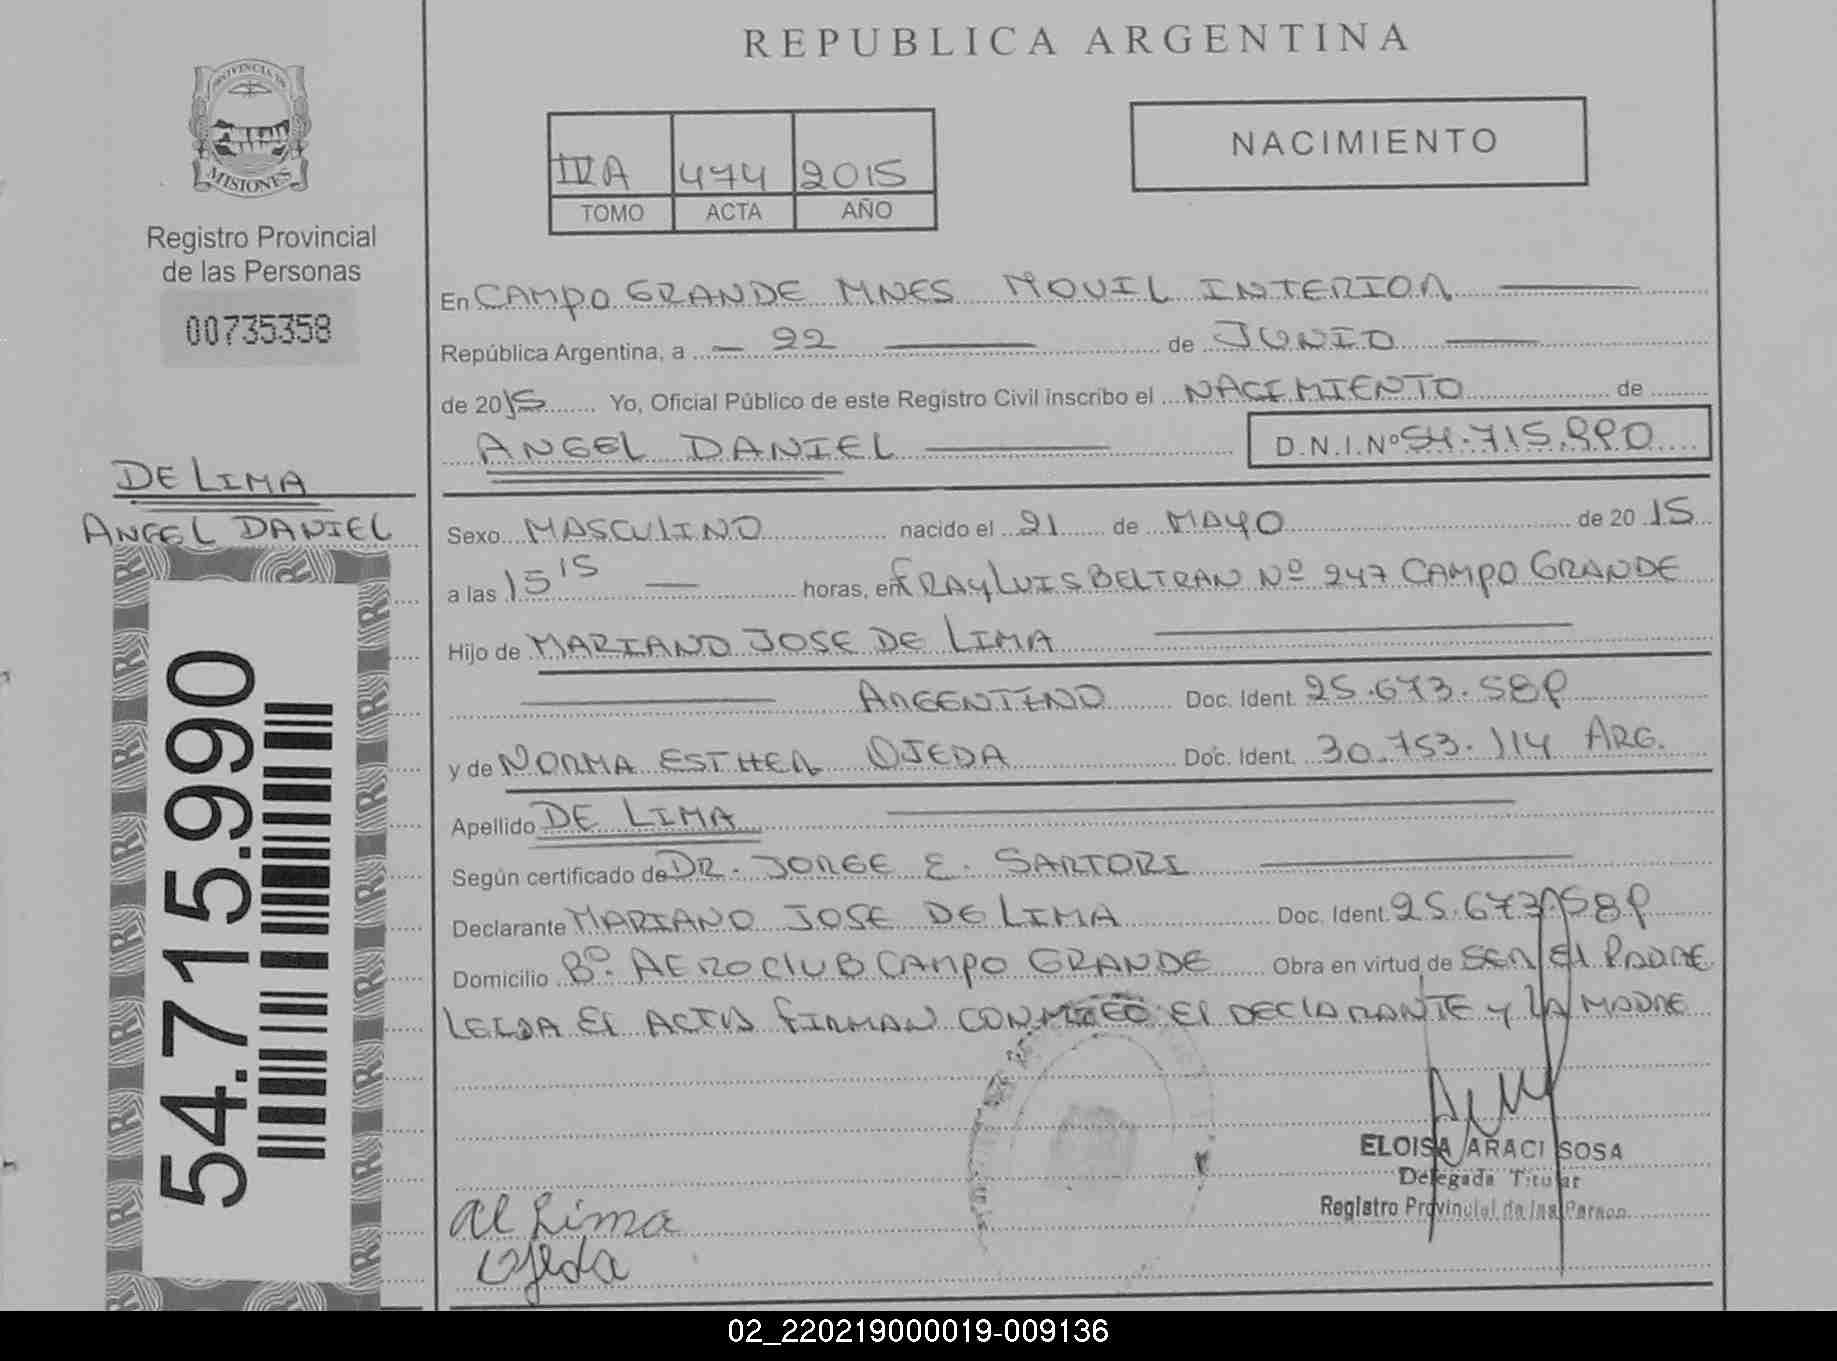 REPUBLICA ARGENTINA
PROVINCIA DE
MISIONES
Registro Provincial
de las Personas
00735358
IVA 474 2015
TOMO ACTA AÑO
NACIMIENTO
En CAMPO GRANDE MNES MOVIL INTERIOR
República Argentina, a 22 de JUNIO
de 2015 Yo, Oficial Público de este Registro Civil inscribo el NACIMIENTO de
ANGEL DANIEL D.N.I.Nº 54.715.990
DE LIMA
ANGEL DANIEL
54.715.990
Sexo MASCULINO nacido el 21 de MAYO de 2015
a las 15 15 horas, en FRAY LUIS BELTRAN Nº 247 CAMPO GRANDE
Hijo de MARIANO JOSE DE LIMA
ARGENTINO Doc. Ident. 25.673.589
y de NORMA ESTHER OJEDA Doc. Ident. 30.753.114 ARG.
Apellido DE LIMA
Según certificado de DR. JORGE E. SARTORI
Declarante MARIANO JOSE DE LIMA Doc. Ident. 25.673.589
Domicilio Bº. AEROCLUB CAMPO GRANDE Obra en virtud de SER EL PADRE
LEIDA EL ACTA FIRMAN CONMIGO EL DECLARANTE Y LA MADRE
ELOISA ARACI SOSA
Delegada Titular
Registro Provincial de las Person
Lima
Ojeda
02_220219000019-009136